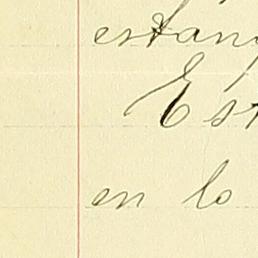 estan
Est
en lo